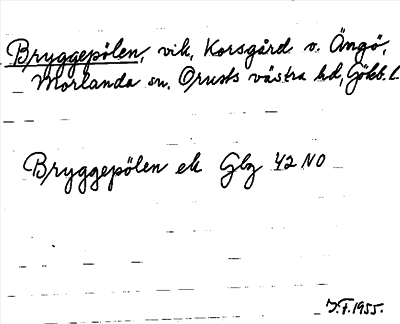 Bryggepölen, vik, Korsgård v. Ängö,
Morlanda sn. Orusts västra hd, Gökb. l.
Bryggepölen ek Glz 42 NO
J.F. 1955.